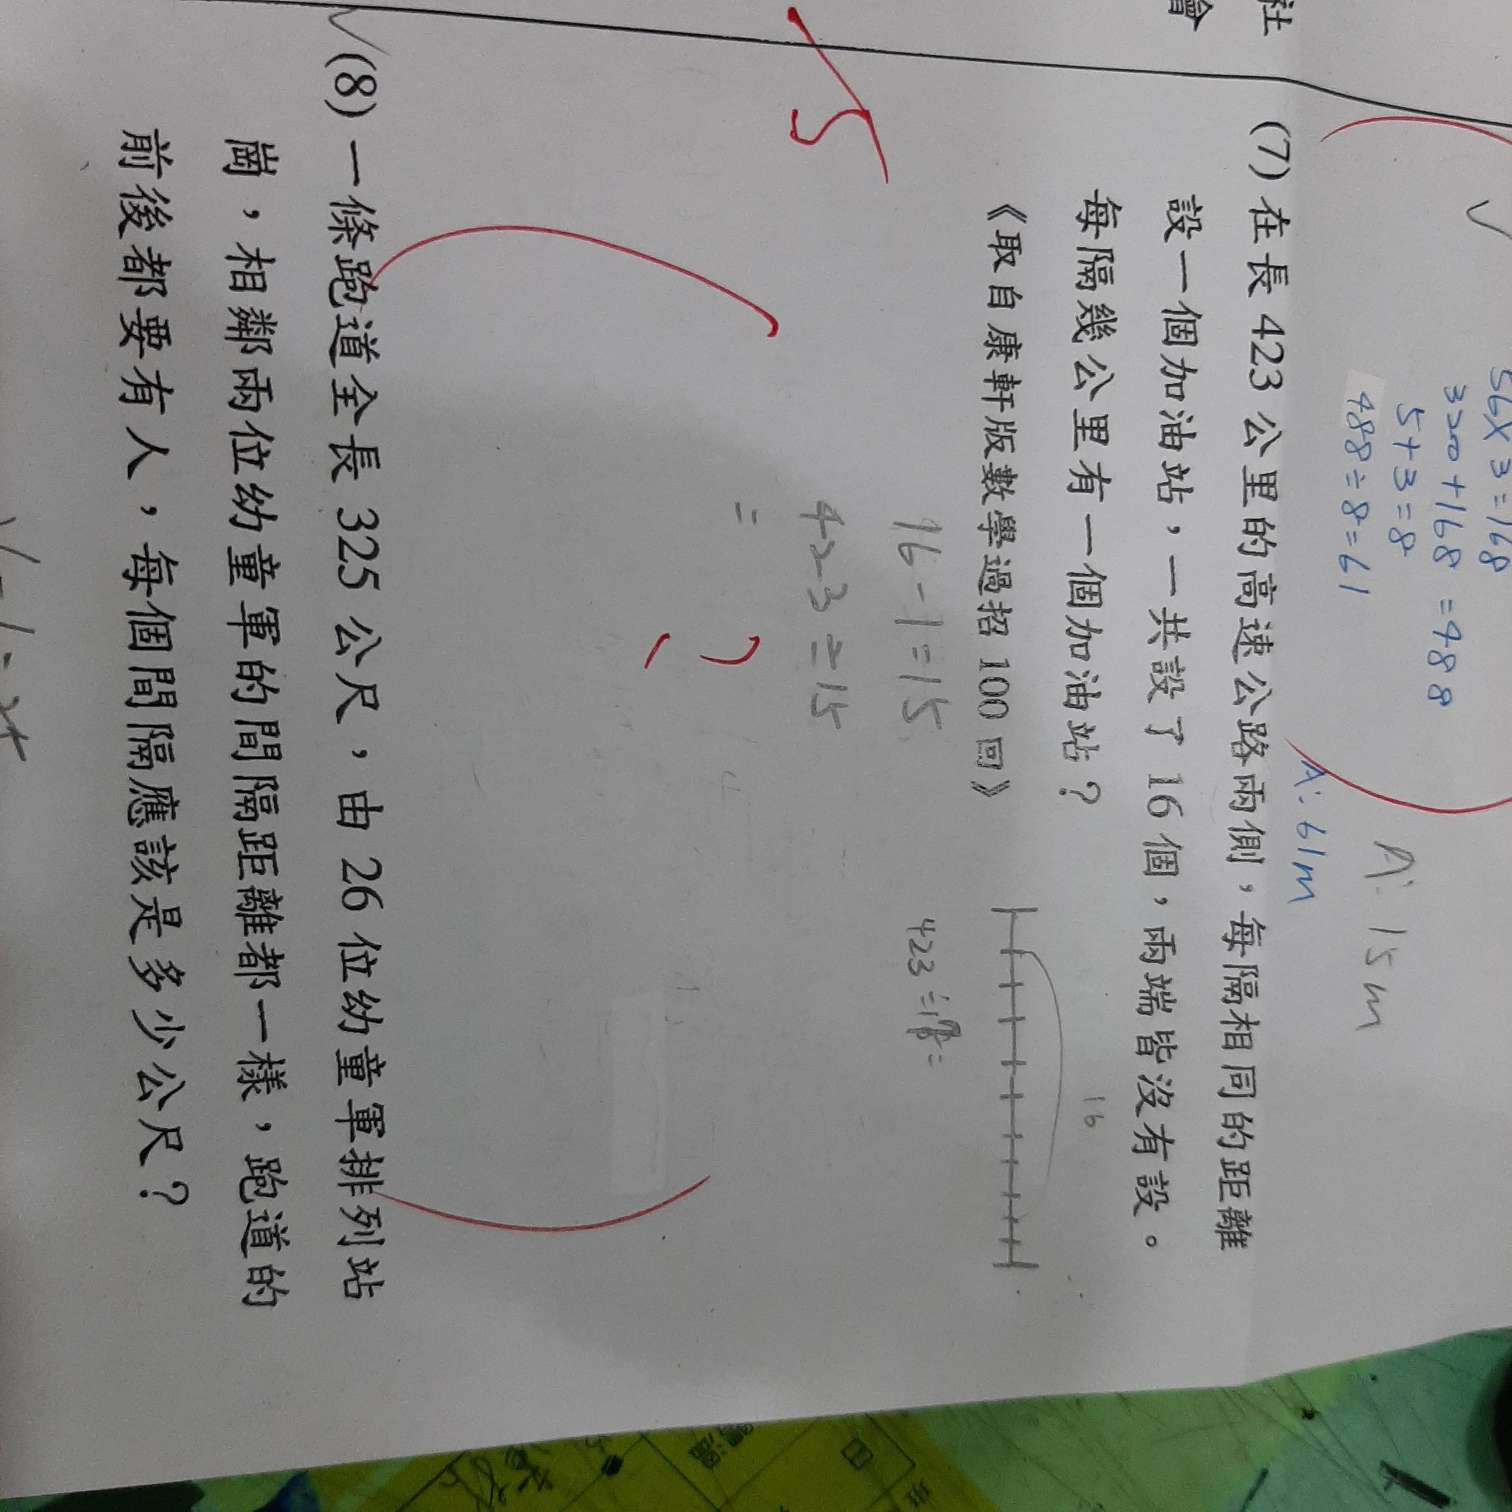 社
會
56×3=168
320+168=488
5+3=8
488÷8=61
A:61m
A:15m
(7) 在長 423 公里的高速公路兩側，每隔相同的距離
設一個加油站，一共設了 16 個，兩端皆沒有設。
每隔幾公里有一個加油站？
《取自康軒版數學過招 100 回》
16
16-1=15
423÷15
=
423÷
5
(8) 一條跑道全長 325 公尺，由 26 位幼童軍排列站
崗，相鄰兩位幼童軍的間隔距離都一樣，跑道的
前後都要有人，每個間隔應該是多少公尺？